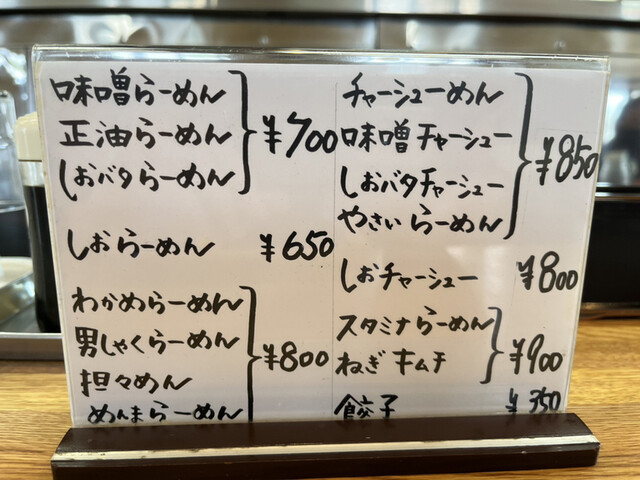 味噌らーめん
正油らーめん
しおバタらーめん
¥700
しおらーめん ¥650
わかめらーめん
男しゃくらーめん
担々めん
めんまらーめん
¥800
チャーシューめん
味噌チャーシュー
しおバタチャーシュー
やさいらーめん
¥850
しおチャーシュー ¥800
スタミナらーめん
ねぎキムチ
¥900
餃子 ¥350